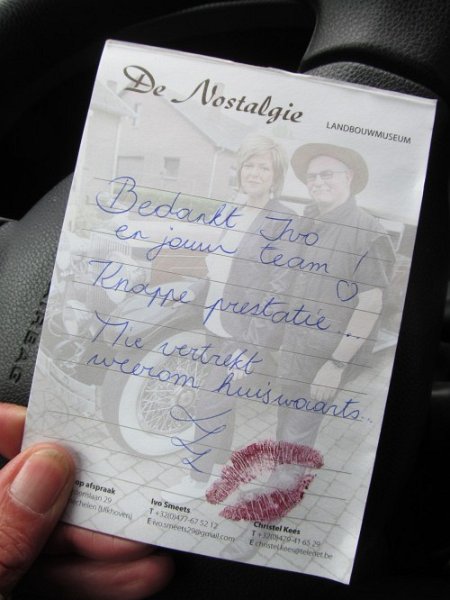 De Nostalgie
LANDBOUWMUSEUM
Bedankt Ivo
en jouw team !
Knappe prestatie...
Mie vertrekt
weerom huiswaarts...
op afspraak
29
(Uikhoven)
Ivo Smeets
T +32(0)477-67 52 12
E ivo.smeets29@gmail.com
Christel Kees
T +32(0)479-41 65 29
E christel.kees@telenet.be
AIRBAG